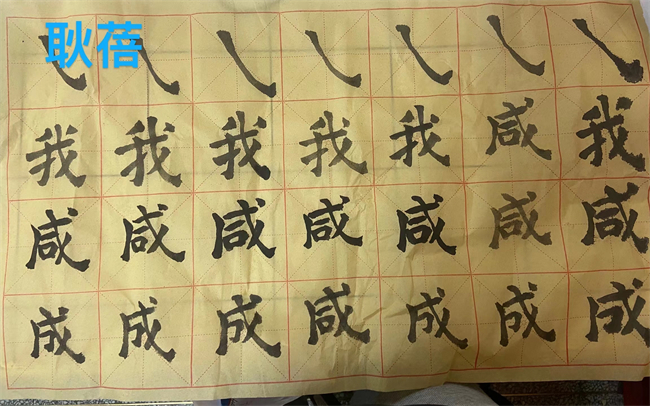 耿蓓
我我我我我咸我
咸咸咸咸咸咸咸
成成成咸成成咸